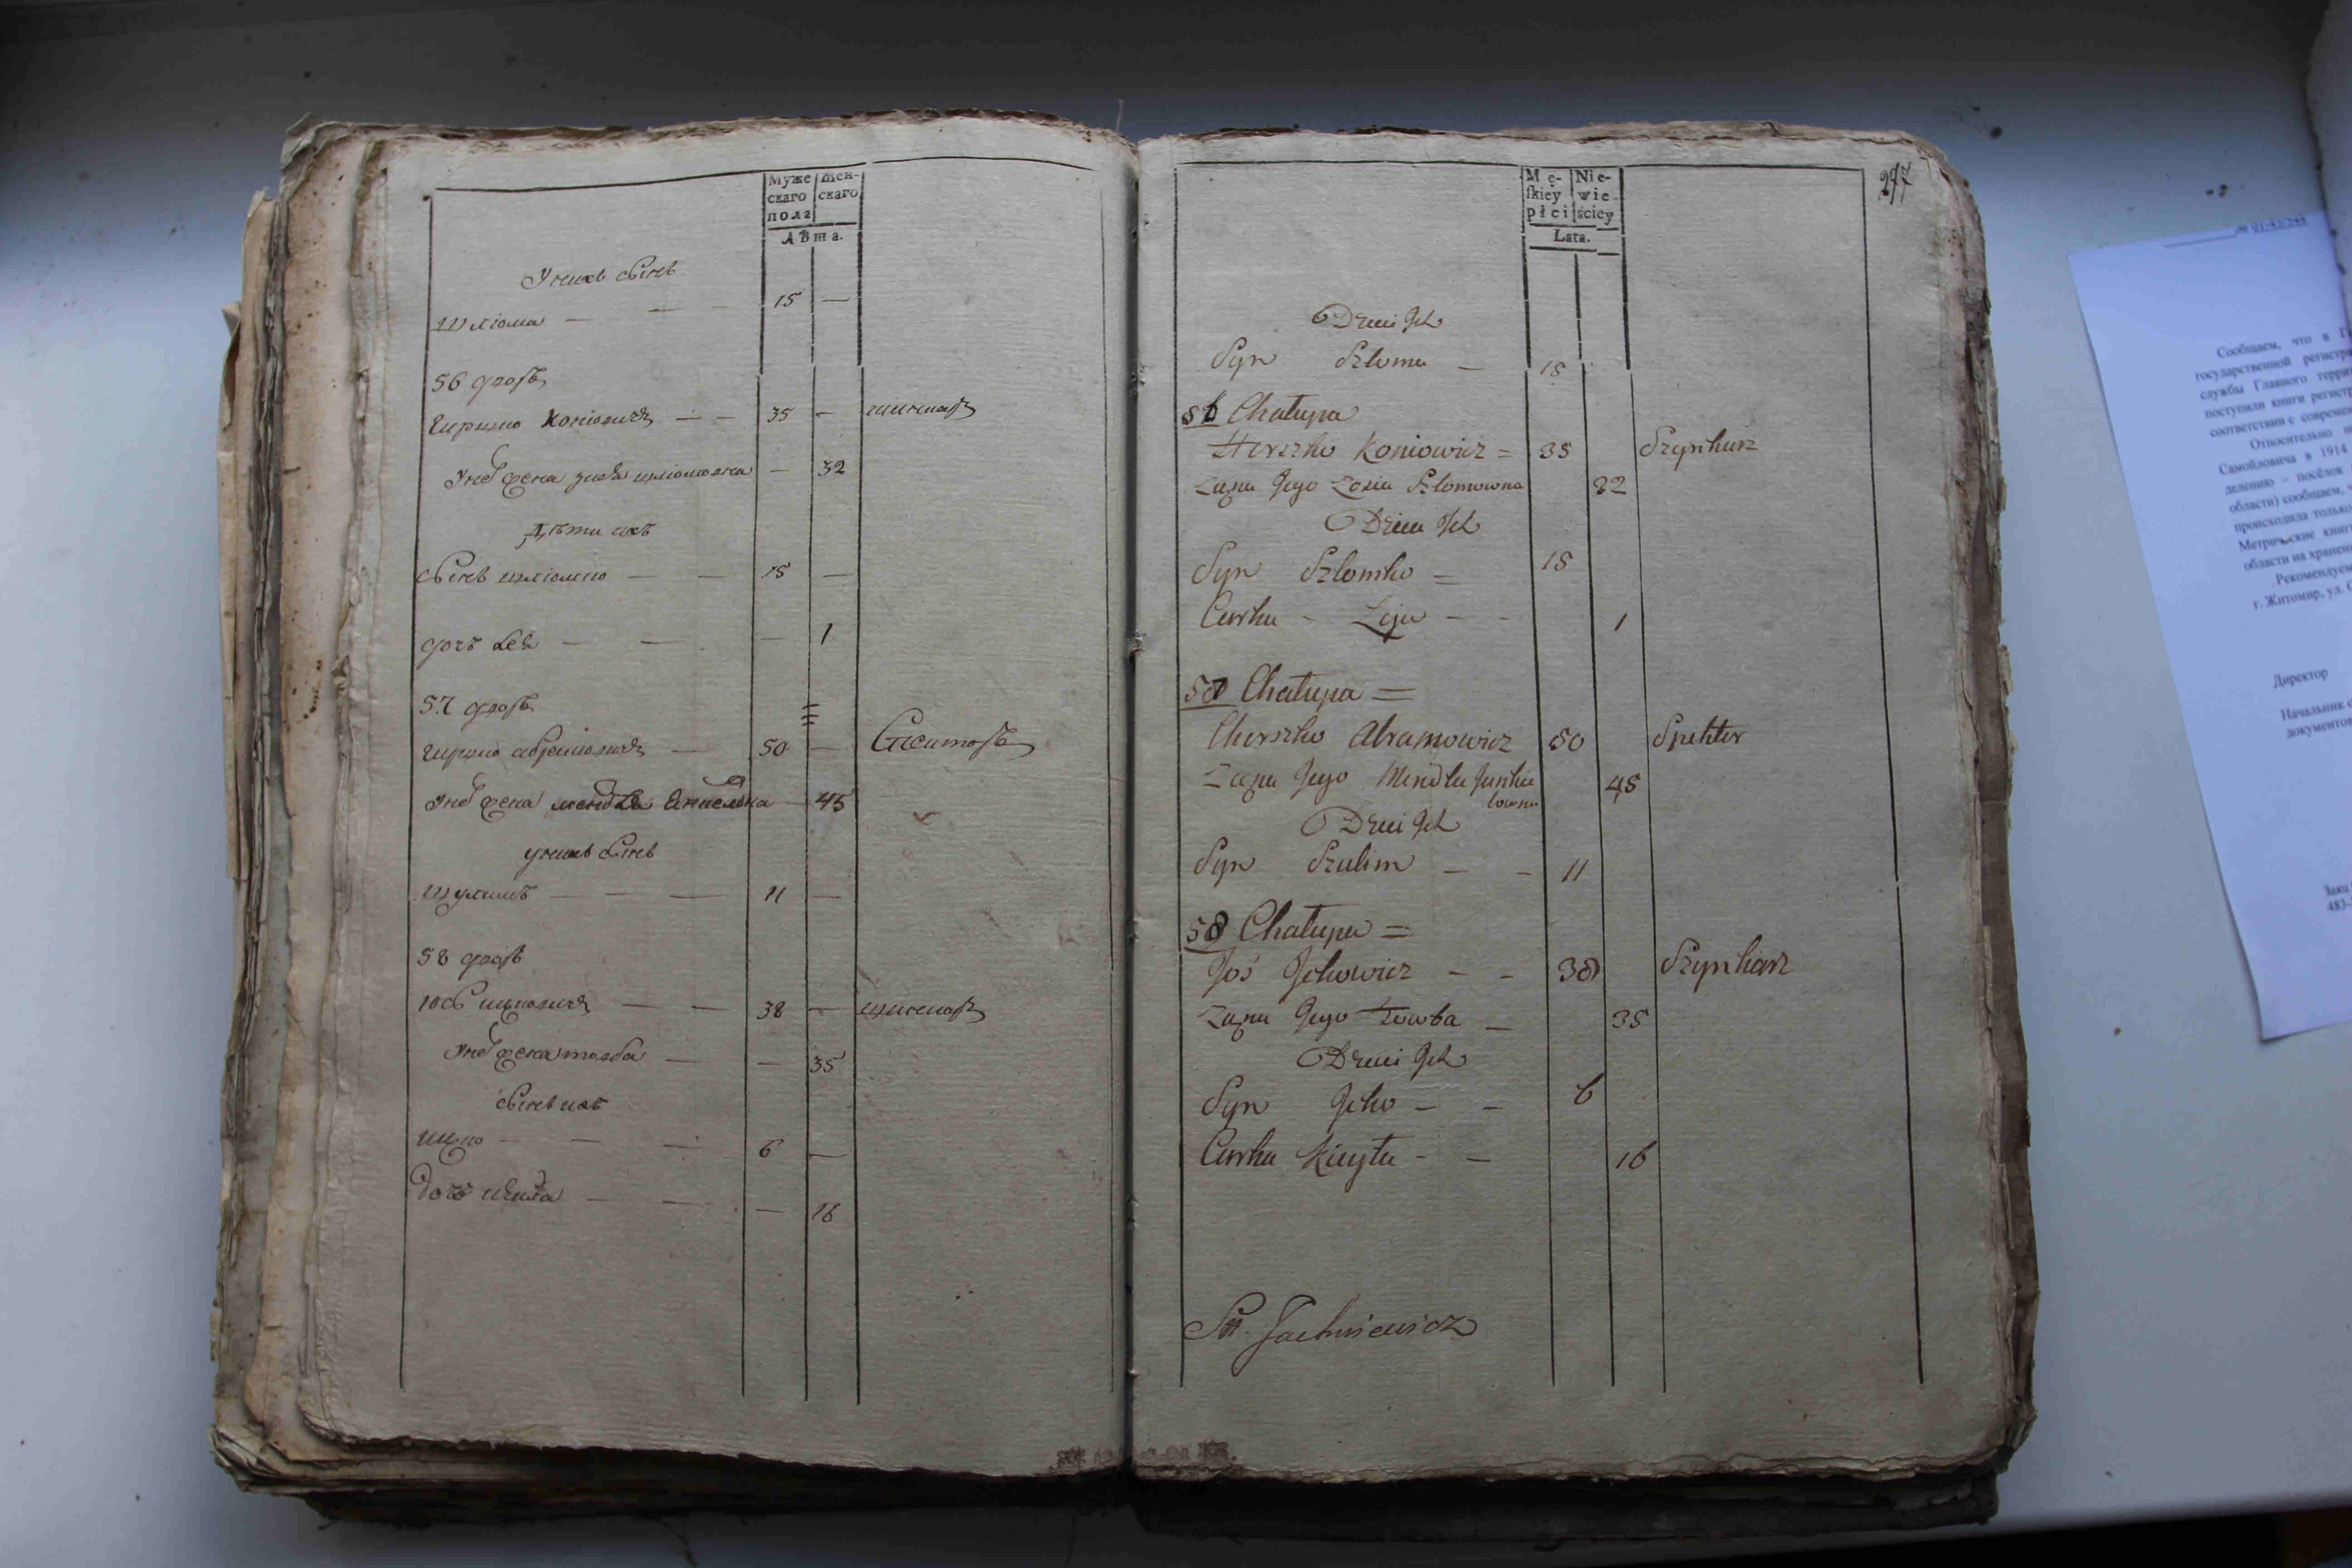 Муже
скаго
пола
Жен-
скаго
Лѣта.
У нихъ сынъ
Шліома — — — 15 —
56 дворъ
Гершко Коніовичъ — — 35 — шинкаръ
У него жена Зися Шліомовна — 32
Дѣти ихъ
Сынъ Шліомко — — 15 —
дочь Лея — — — 1
57 дворъ
Гершко Абрамовичъ — 50 —
У него жена Мендля — 45
У нихъ сынъ
Шулимъ — — — 11 —
58 дворъ
Іось Ицковичъ — — 38 — шинкаръ
У него жена Товба — — 35
Сынъ ихъ
Ицко — — — 6 —
Дочь — — — 16
Mę-
skiey
płci
Nie-
wie-
ściey
Lata.
247
Dzieci Ich
Syn Szloma — 15
56 Chałupa
Herszko Koniowicz = 35 Szynkarz
Żona Jego Zosia Szlomowna 32
Dzieci Ich
Syn Szlomko = 15
Curka - Leja - - 1
57 Chałupa =
Cherszko Abramowicz 50 Spekter
Żona Jego Mendla Jankie
lowna 45
Dzieci Ich
Syn Szulim — - 11
58 Chałupa =
Joś Jckowicz - - 38 Szynkarz
Żona Jego Towba — 35
Dzieci Ich
Syn Jcko — - 6
Curka - — 16
Jachniewicz
Сообщаем, что в
государственной
службы Главного
поступили книги
соответствии с
Относительно
Самойловича в 1914
делению – посёлок
области) сообщаем,
происходила только
Метрические
области на
Рекомендуем
г. Житомир, ул.
Директор
Начальник